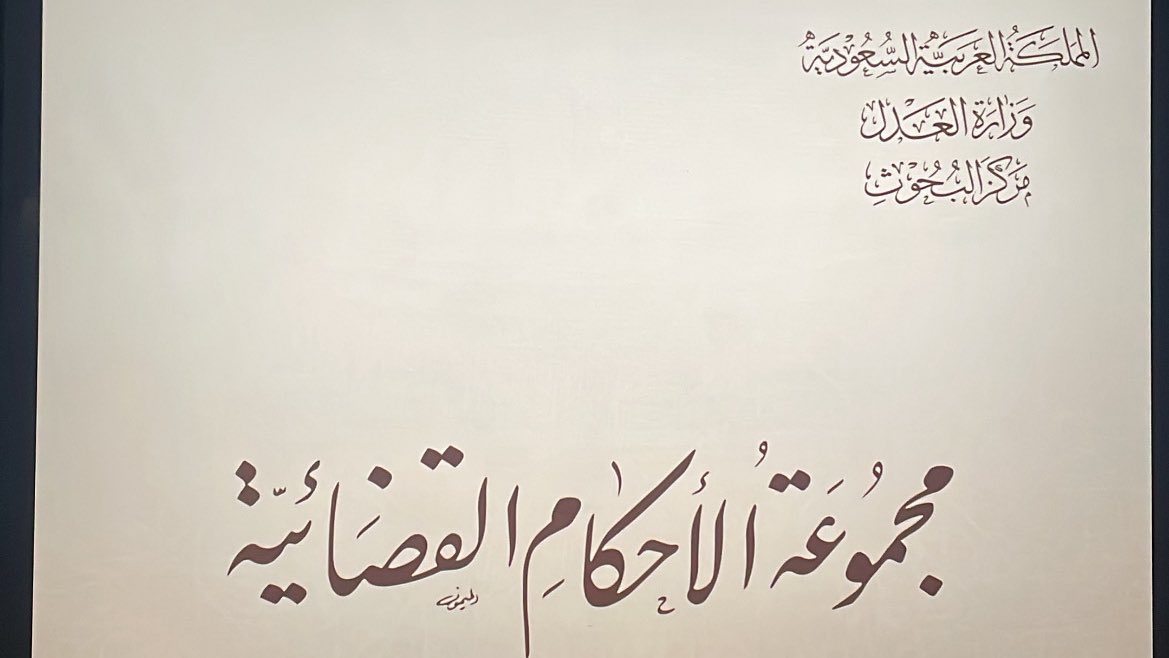 المملكة العربية السعودية
وزارة العدل
مركز البحوث
مجموعة الأحكام القضائية